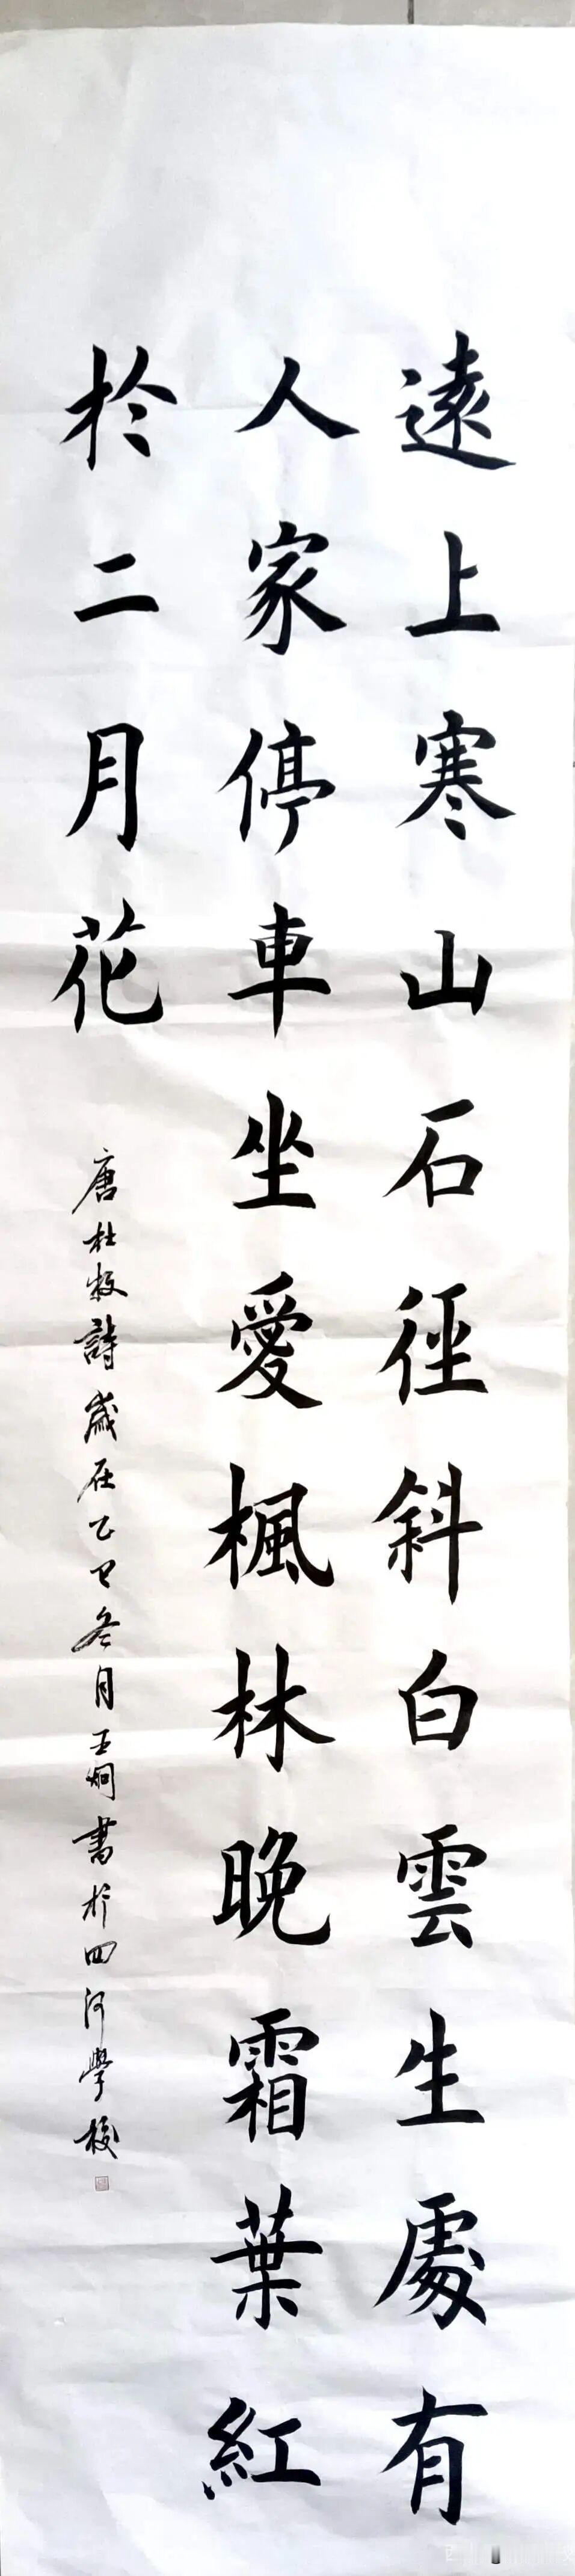 遠上寒山石徑斜白雲生處有
人家停車坐愛楓林晚霜葉紅
於二月花
唐杜牧詩歲在乙巳冬月王炯書於四河學校